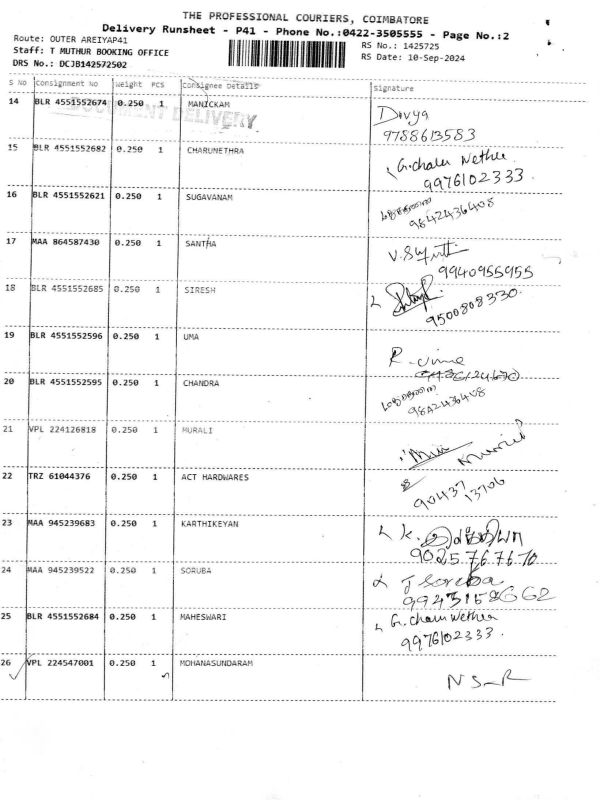 THE PROFESSIONAL COURIERS, COIMBATORE
Delivery Runsheet - P41 - Phone No.:0422-3505555 - Page No.:2
Route: OUTER AREIYAP41
RS No.: 1425725
Staff: T MUTHUR BOOKING OFFICE
RS Date: 10-Sep-2024
DRS No.: DCJB142572502
S No Consignment No Weight PCS Consignee Details Signature
DOCUMENT DELIVERY
14 BLR 4551552674 0.250 1 MANICKAM Divya
9788613583
15 BLR 4551552682 0.250 1 CHARUNETHRA G.charu Nethra
9976102333
16 BLR 4551552621 0.250 1 SUGAVANAM
9842436408
17 MAA 864587430 0.250 1 SANTHA
9940955955
18 BLR 4551552685 0.250 1 SIRESH
9500808330
19 BLR 4551552596 0.250 1 UMA
20 BLR 4551552595 0.250 1 CHANDRA
9842436408
21 VPL 224126818 0.250 1 MURALI
22 TRZ 61044376 0.250 1 ACT HARDWARES
90437 13706
23 MAA 945239683 0.250 1 KARTHIKEYAN
9025767670
24 MAA 945239522 0.250 1 SORUBA J Soruba
25 BLR 4551552684 0.250 1 MAHESWARI G.charu Nethra
9976102333
26 VPL 224547001 0.250 1 MOHANASUNDARAM